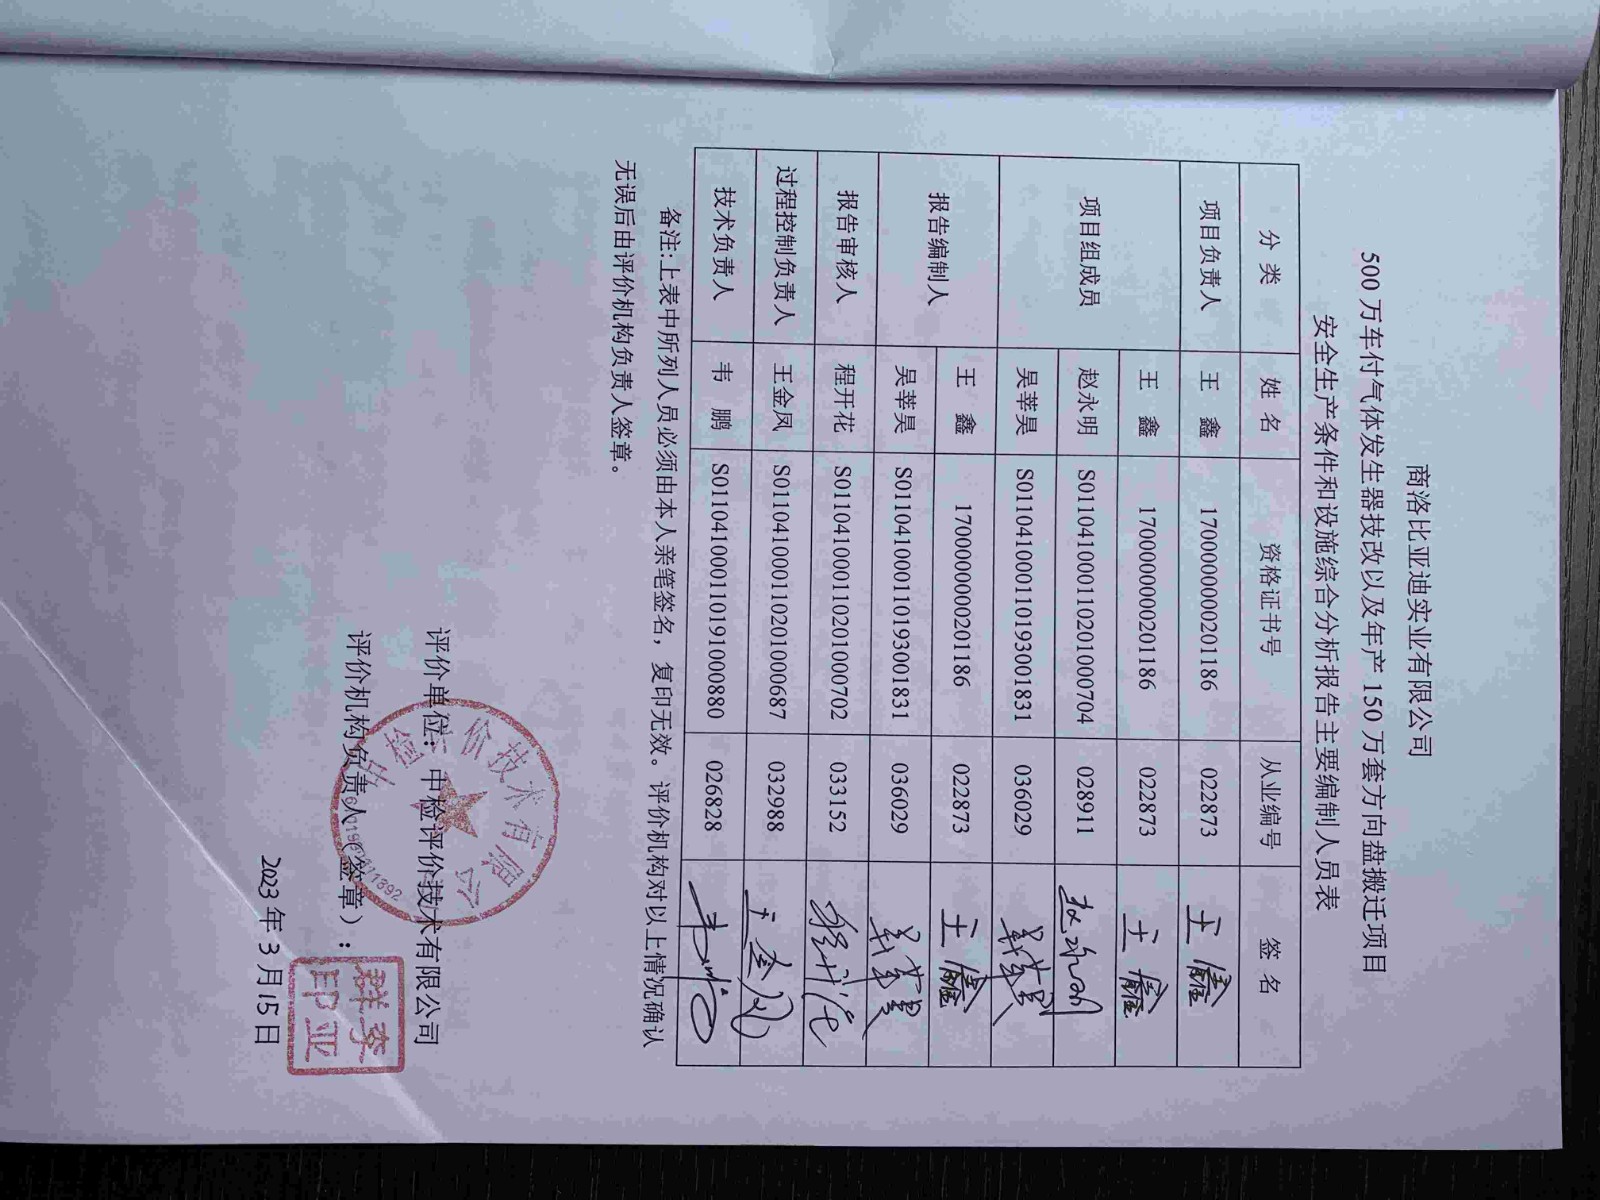 商洛比亚迪实业有限公司
500 万车付气体发生器技改以及年产 150 万套方向盘搬迁项目
安全生产条件和设施综合分析报告主要编制人员表
分 类 姓 名 资格证书号 从业编号 签 名
项目负责人 王 鑫 1700000000201186 022873 王鑫
项目组成员 王 鑫 1700000000201186 022873 王鑫
赵永明 S011041000110201000704 028911 赵永明
吴莘昊 S011041000110193001831 036029 吴莘昊
报告编制人 王 鑫 1700000000201186 022873 王鑫
吴莘昊 S011041000110193001831 036029 吴莘昊
报告审核人 程开花 S011041000110201000702 033152 程开花
过程控制负责人 王金凤 S011041000110201000687 032988 王金凤
技术负责人 韦 鹏 S011041000110191000880 026828 韦鹏
备注:上表中所列人员必须由本人亲笔签名，复印无效。评价机构对以上情况确认
无误后由评价机构负责人签章。
评价单位：中检评价技术有限公司
评价机构负责人（签章）：
2023 年 3 月 15 日
中检评价技术有限公
李亚
群印